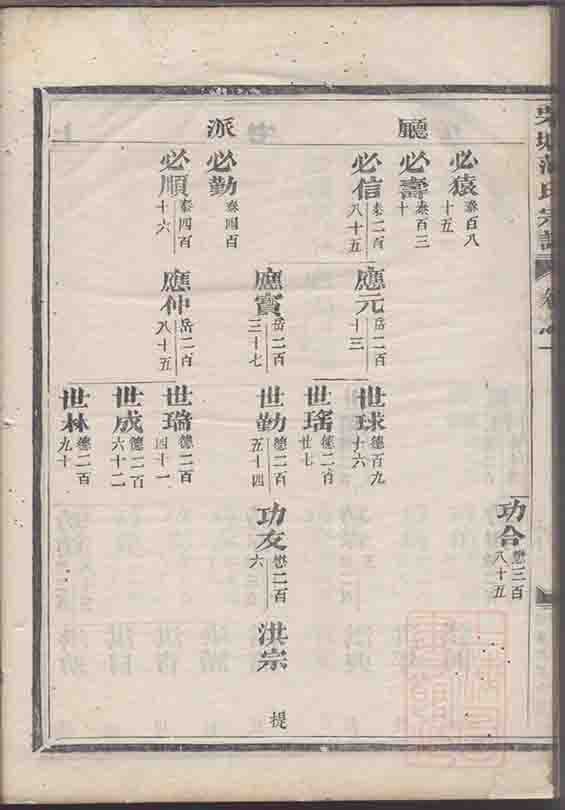 氏宗譜
卷之一
廳
派
必猿 泰百八十五
必壽 泰百三十
必信 泰二百八十五
必勤 泰四百
必順 泰四百十六
應元 岳二百十三
應寶 岳二百三十七
應仲 岳二百八十五
世球 德百九十六
世瑤 德二百廿七
世勤 德二百五十四
世瑞 德二百四十一
世成 德二百六十二
世林 德二百九十
功合 懋三百八十五
功友 懋二百六
洪宗
提